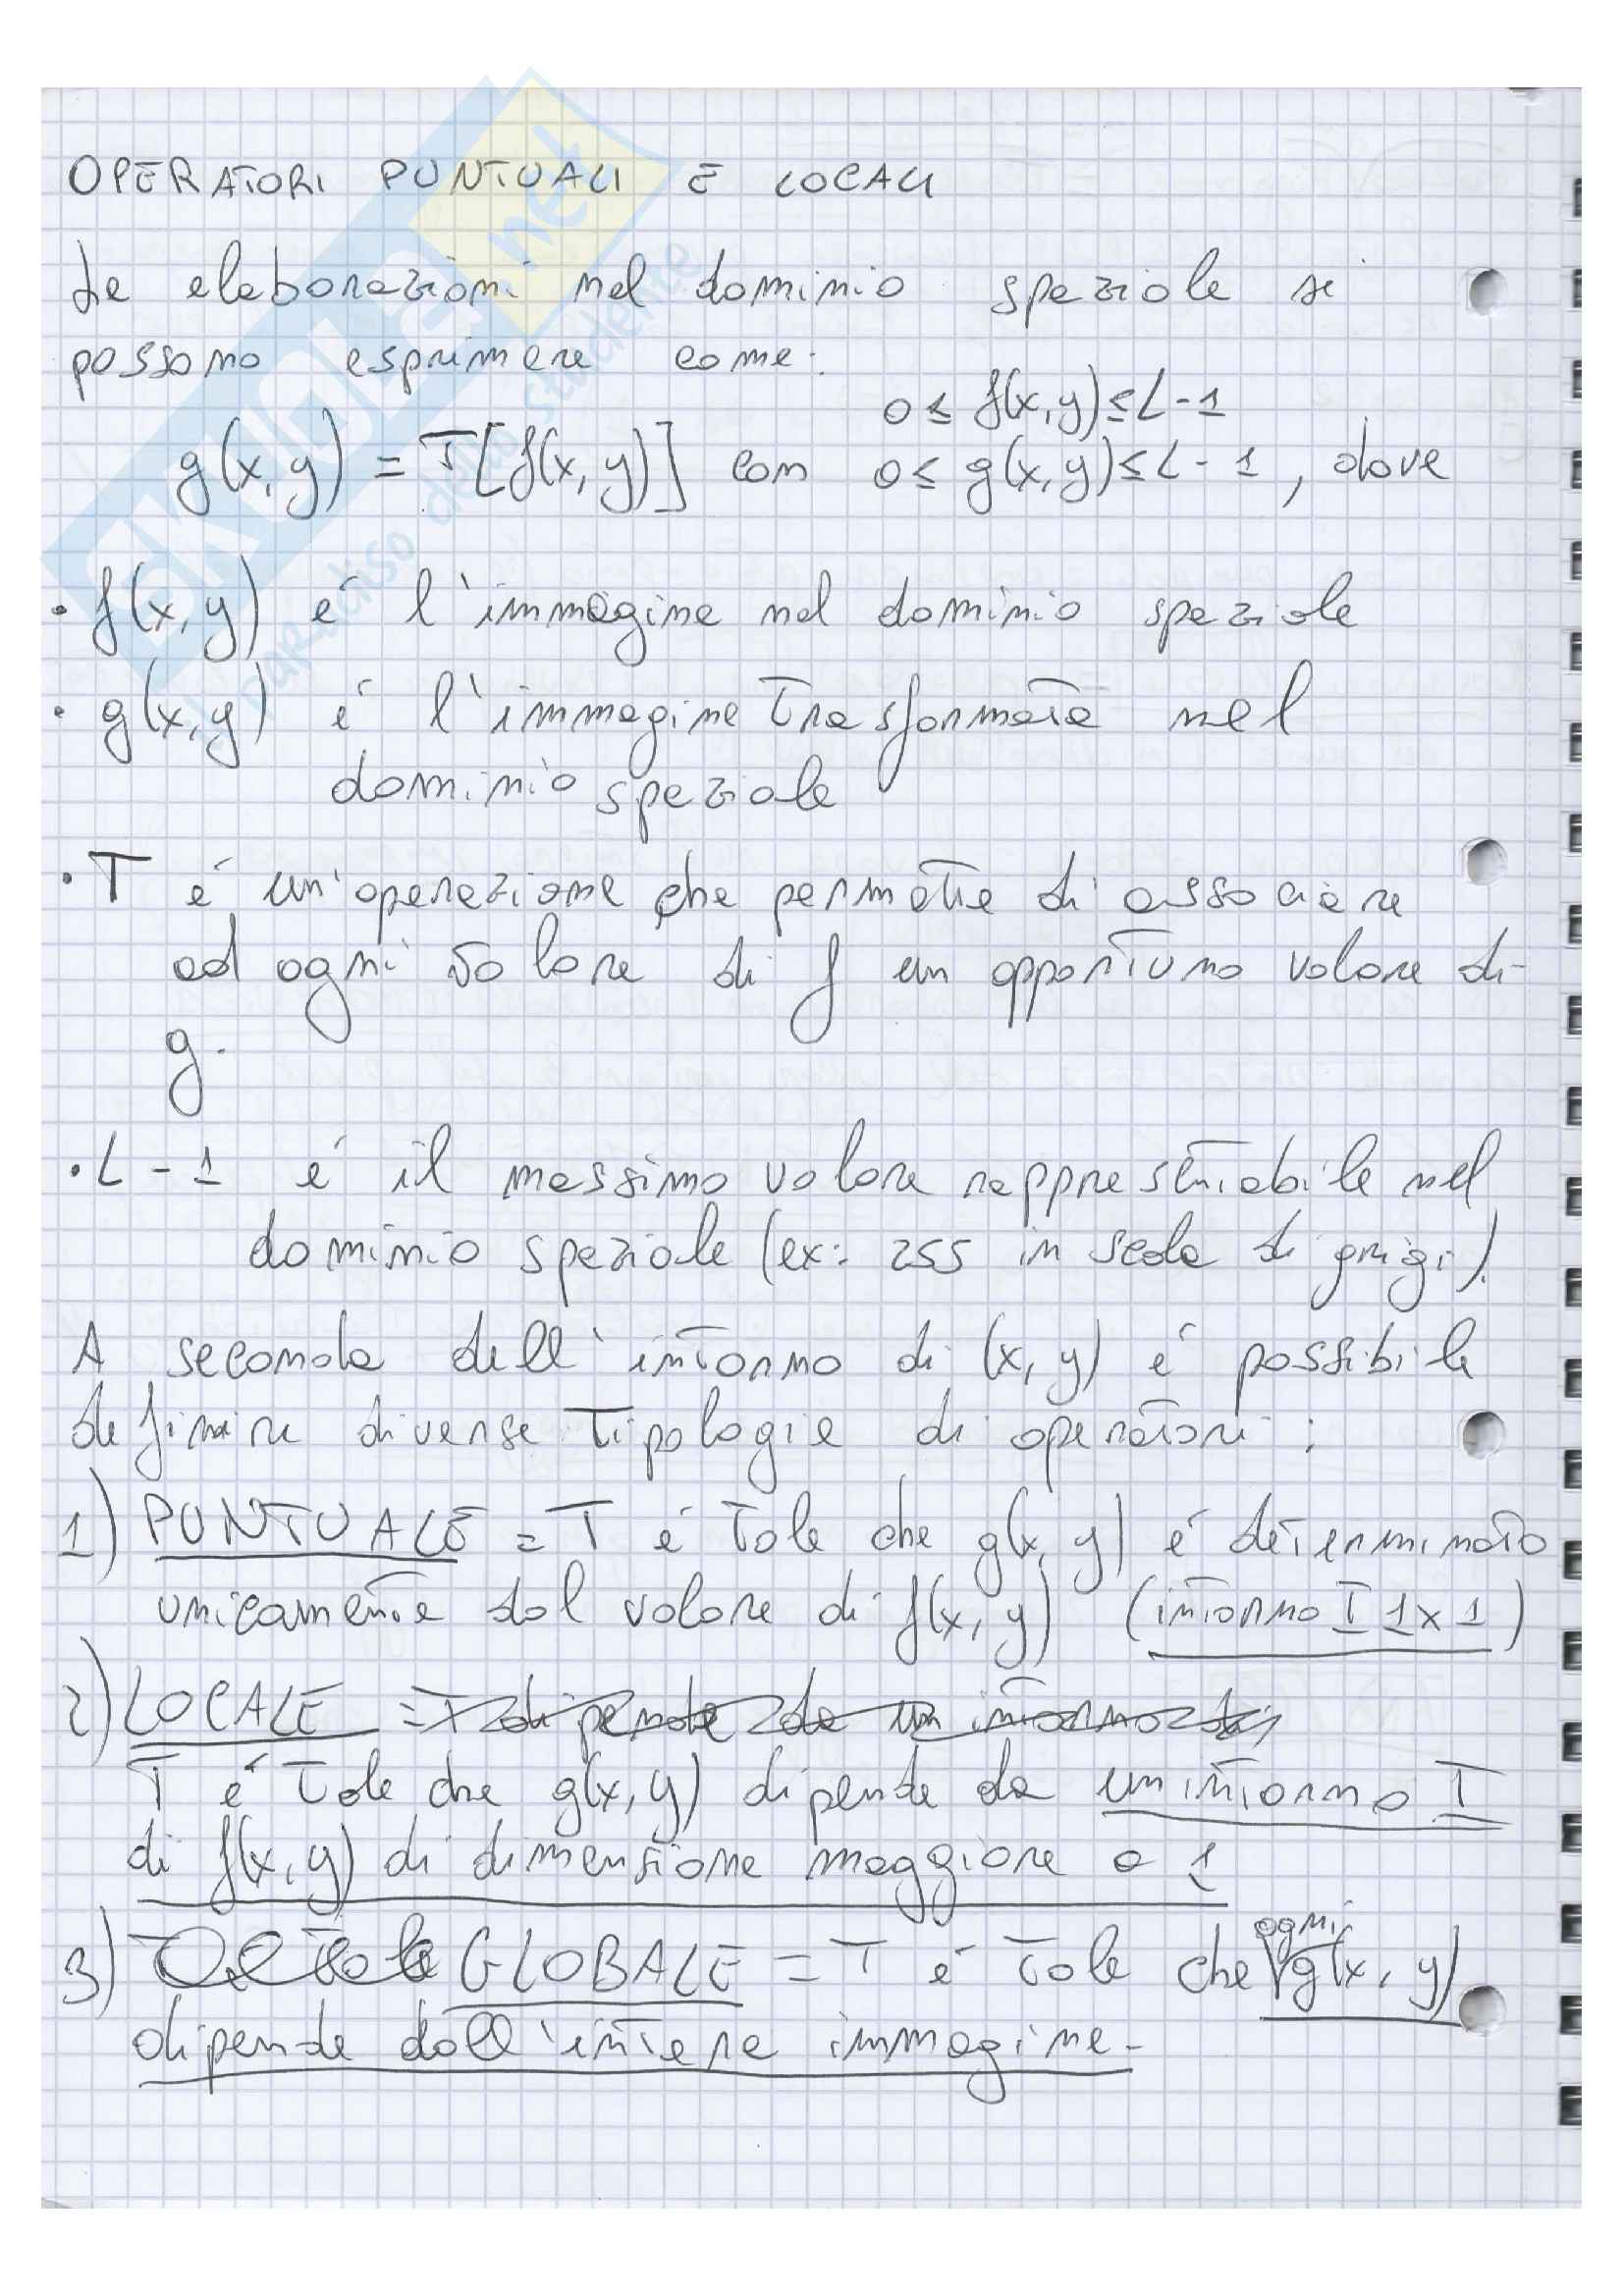 OPERATORI PUNTUALI E LOCALI
Le elaborazioni nel dominio spaziale si
possono esprimere come:
0 ≤ f(x,y) ≤ L-1
g(x,y) = T[f(x,y)] con 0 ≤ g(x,y) ≤ L-1, dove
• f(x,y) é l'immagine nel dominio spaziale
• g(x,y) é l'immagine trasformata nel
dominio spaziale
• T é un'operazione che permette di associare
ad ogni valore di f un opportuno valore di
g.
• L-1 é il massimo valore rappresntabile nel
dominio spaziale (ex: 255 in scala di grigi).
A seconda dell'intorno di (x,y) é possibile
definire diverse tipologie di operatori:
1) PUNTUALE = T é tale che g(x,y) é determinato
unicamente dal valore di f(x,y) (intorno I 1x1)
2) LOCALE = T dipende da un intorno di
T é tale che g(x,y) dipende da un intorno I
di f(x,y) di dimensione maggiore a 1
3) GLOBALE = T é tale che ogni g(x,y)
dipende dall'intera immagine.
SKUOLA.net
paradiso dello studente